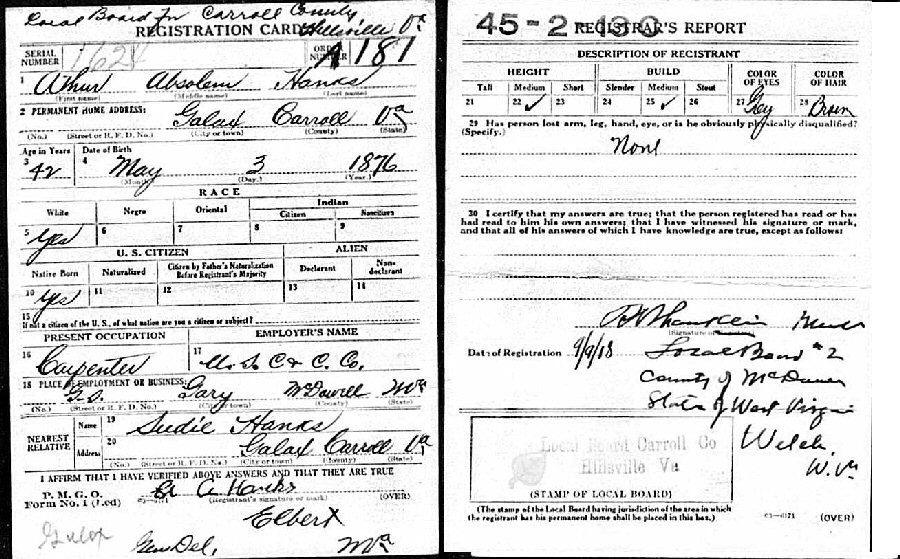 Local Board for Carroll County
Hillsville Va
REGISTRATION CARD
SERIAL NUMBER 1624
ORDER NUMBER A 187
1 Athur Absolem Hanks
(First name) (Middle name) (Last name)
2 PERMANENT HOME ADDRESS:
Galax Carroll Va
(No.) (Street or R. F. D. No.) (City or town) (County) (State)
Age in Years Date of Birth
3 42 4 May 3 1876
(Month.) (Day.) (Year.)
RACE
White Negro Oriental Indian
Citizen Noncitizen
5 Yes 6 7 8 9
U. S. CITIZEN ALIEN
Native Born Naturalized Citizen by Father's Naturalization Before Registrant's Majority Declarant Non-declarant
10 Yes 11 12 13 14
15
If not a citizen of the U. S., of what nation are you a citizen or subject?
PRESENT OCCUPATION EMPLOYER'S NAME
16 Carpenter 17 U. S. C & C. Co.
18 PLACE OF EMPLOYMENT OR BUSINESS:
G.D. Gary McDowell Wva
(No.) (Street or R. F. D. No.) (City or town) (County) (State)
NEAREST RELATIVE
Name 19 Sudie Hanks
Address 20 Galax Carroll Va
(No.) (Street or R. F. D. No.) (City or town) (County) (State)
I AFFIRM THAT I HAVE VERIFIED ABOVE ANSWERS AND THAT THEY ARE TRUE
P. M. G. O.
Form No. 1 (Red) 03—6171 (Registrant's signature or mark) (OVER)
A Hanks
Elbert
Galax
Gen Del, Wva
45-2-130 REGISTRAR'S REPORT
DESCRIPTION OF REGISTRANT
HEIGHT BUILD COLOR OF EYES COLOR OF HAIR
Tall Medium Short Slender Medium Stout
21 22 ✓ 23 24 25 ✓ 26 27 Gey 28 Brown
29 Has person lost arm, leg, hand, eye, or is he obviously physically disqualified?
(Specify.)
None
30 I certify that my answers are true; that the person registered has read or has
had read to him his own answers; that I have witnessed his signature or mark,
and that all of his answers of which I have knowledge are true, except as follows:
(Signature of
Date of Registration 9/9/18 Local Board #2
County of McDowell
State of West Virginia
Welch,
W. Va
Local Board Carroll Co
Hillsville Va
(STAMP OF LOCAL BOARD)
(The stamp of the Local Board having jurisdiction of the area in which
the registrant has his permanent home shall be placed in this box.)
03—6171 (OVER)